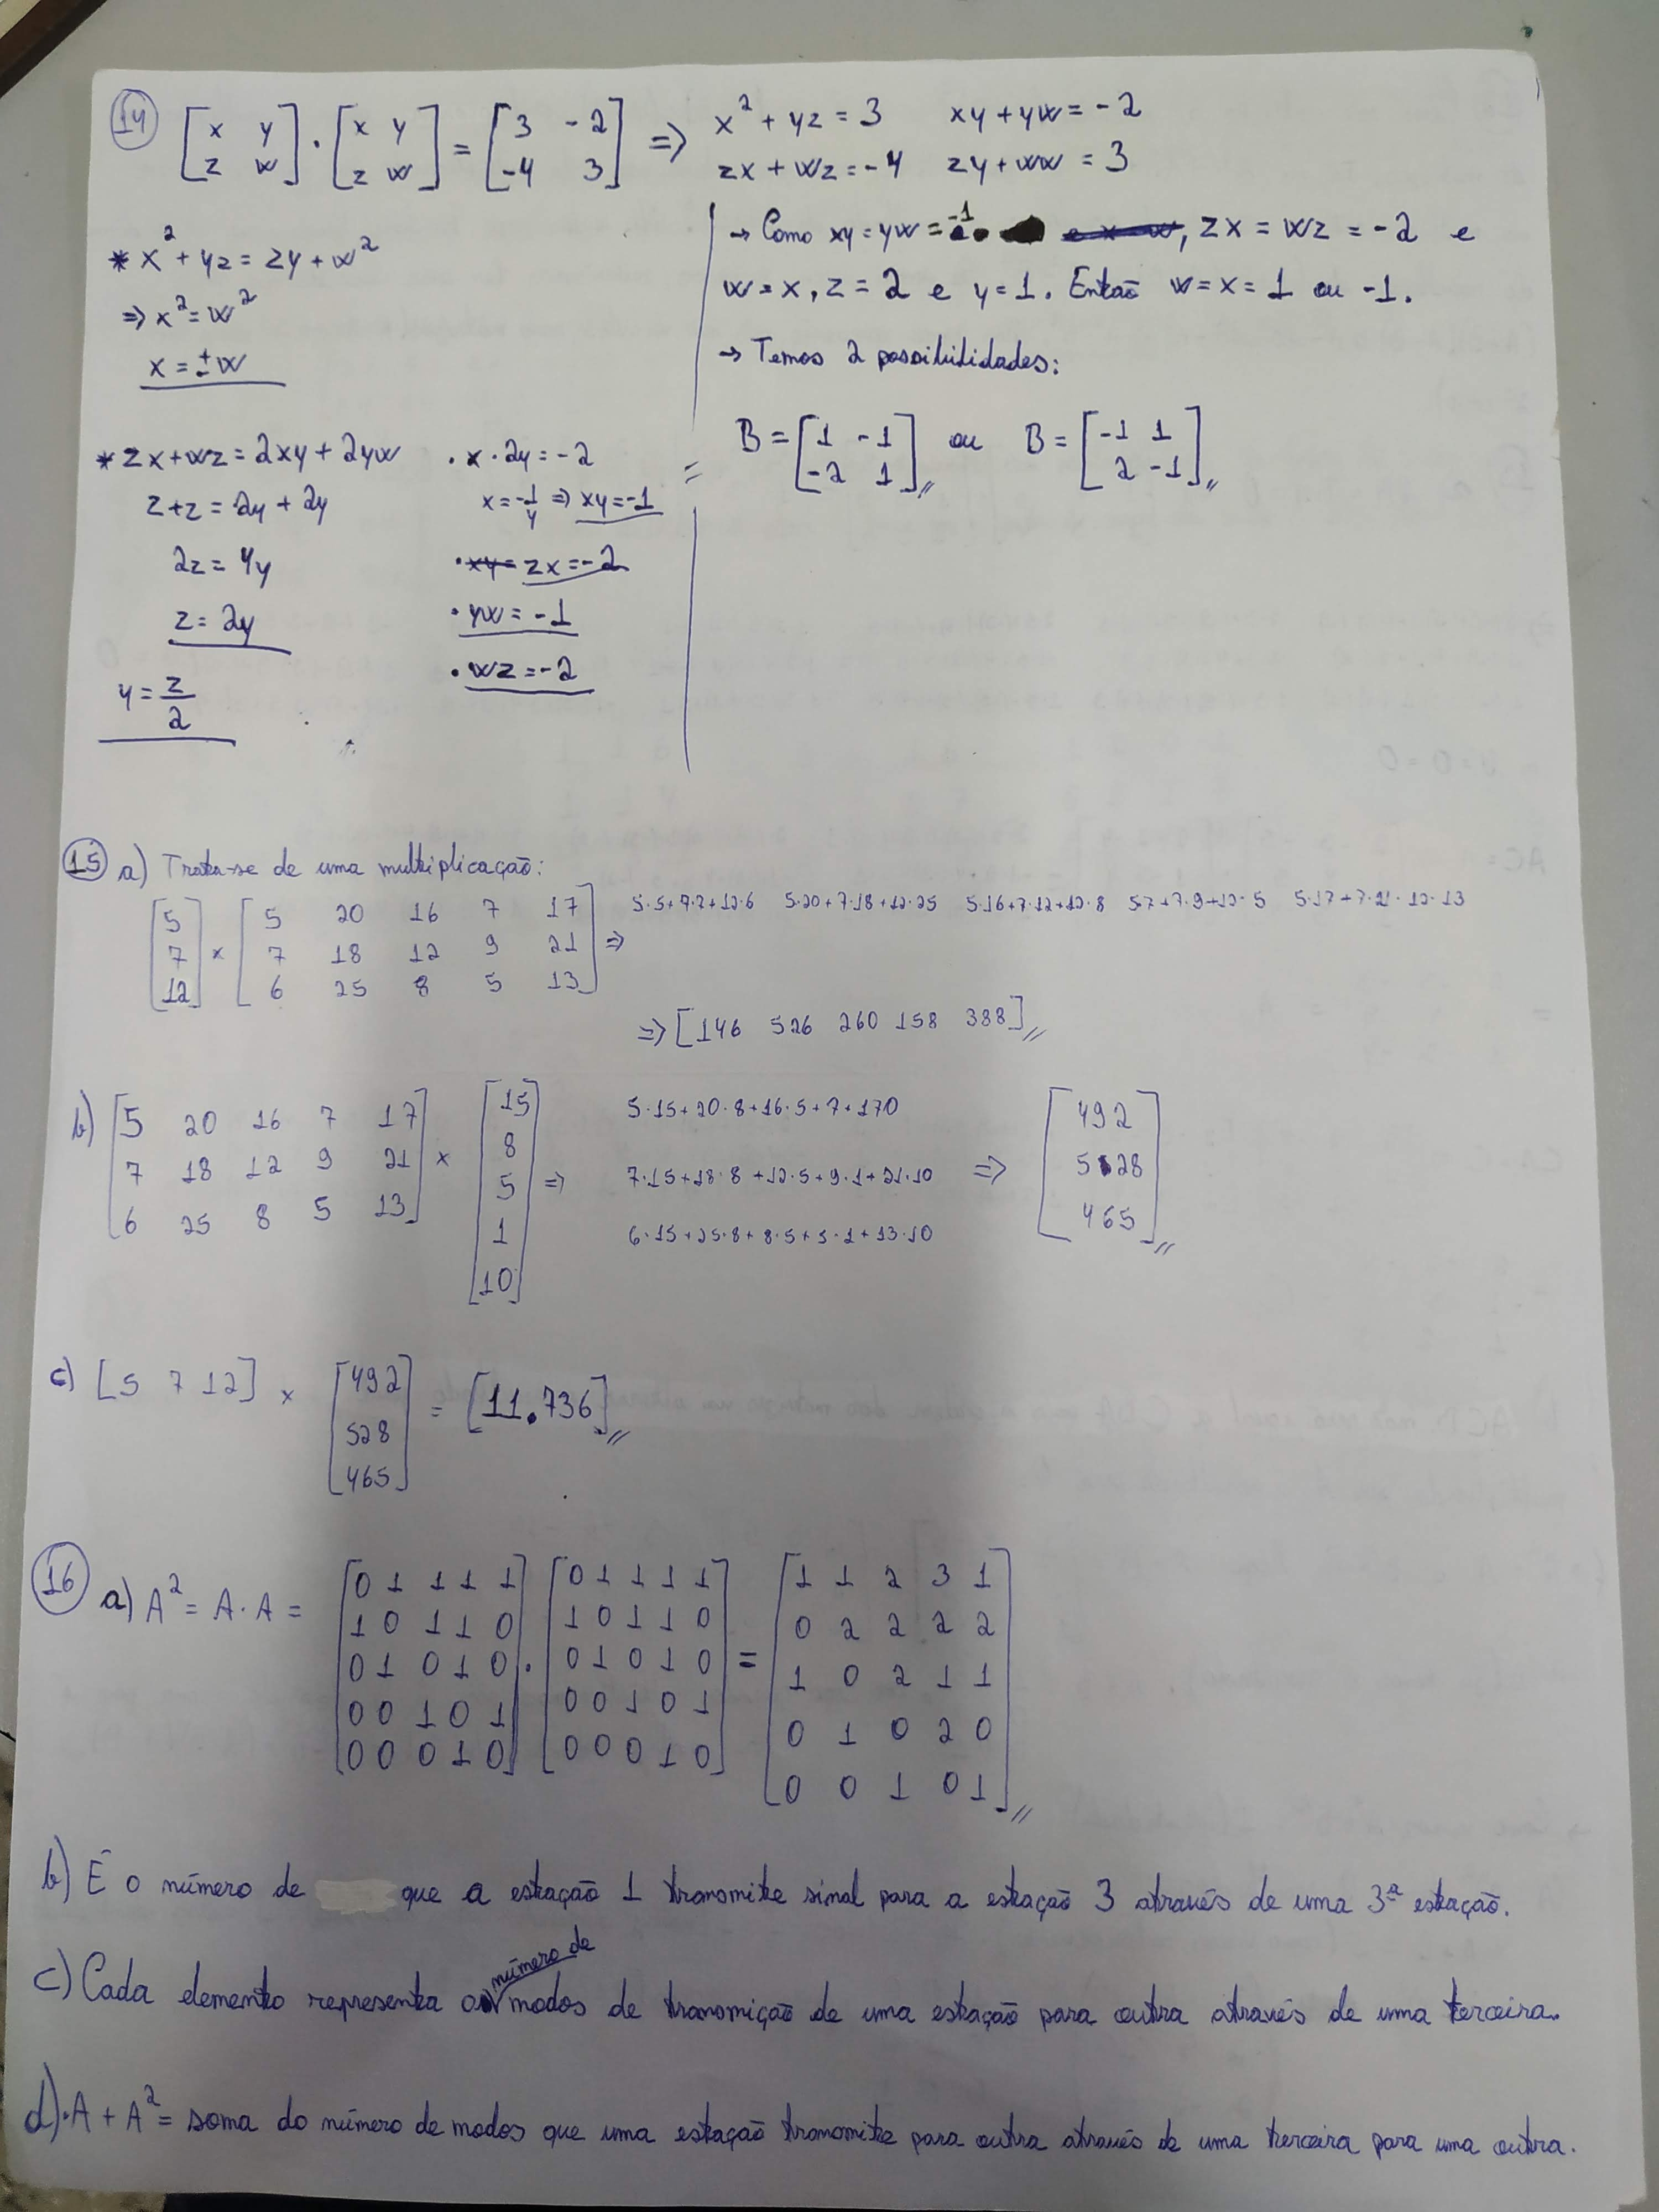 14 [x y; z w] · [x y; z w] = [3 -2; -4 3] => x² + yz = 3 xy + yw = -2
zx + wz = -4 zy + ww = 3
* x² + yz = zy + w²
=> x² = w²
x = ±w
* zx + wz = 2xy + 2yw
z + z = 2y + 2y
2z = 4y
z = 2y
y = z/2
· x · 2y = -2
x = -1/y => xy = -1
· xy = zx = -2
· yw = -1
· wz = -2
→ Como xy = yw = -1 e x = w, zx = wz = -2 e
w = x, z = 2 e y = 1. Então w = x = 1 ou -1.
→ Temos 2 possibilidades:
B = [1 -1; -2 1] ou B = [-1 1; 2 -1]
15 a) Trata-se de uma multiplicação:
[5; 7; 12] × [5 20 16 7 17; 7 18 12 9 21; 6 25 8 5 13] => 5·5+7·7+12·6 5·20+7·18+12·25 5·16+7·12+12·8 5·7+7·9+12·5 5·17+7·21·12·13
=> [146 526 260 158 388]
b) [5 20 16 7 17; 7 18 12 9 21; 6 25 8 5 13] × [15; 8; 5; 1; 10] => 5·15+20·8+16·5+7+170
7·15+18·8+12·5+9·1+21·10 => [492; 528; 465]
6·15+25·8+8·5+5·1+13·10
c) [5 7 12] × [492; 528; 465] = [11.736]
16 a) A² = A·A = [0 1 1 1 1; 1 0 1 1 0; 0 1 0 1 0; 0 0 1 0 1; 0 0 0 1 0] · [0 1 1 1 1; 1 0 1 1 0; 0 1 0 1 0; 0 0 1 0 1; 0 0 0 1 0] = [1 1 2 3 1; 0 2 2 2 2; 1 0 2 1 1; 0 1 0 2 0; 0 0 1 0 1]
b) É o número de que a estação 1 transmite sinal para a estação 3 através de uma 3ª estação.
c) Cada elemento representa o número de modos de transmição de uma estação para outra através de uma terceira.
d) · A + A² = soma do número de modos que uma estação transmite para outra através de uma terceira para uma outra.